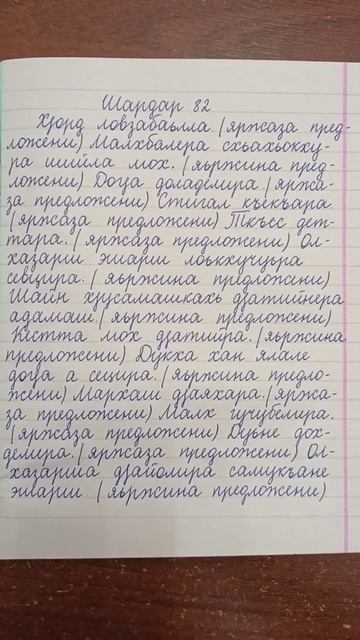 Шардар 82
Хӏорд ловзабаьлла. (яржаза пред-
ложени) Малхбалера схьахьокху-
ра шийла мох. (яьржина пред-
ложени) Догӏа доладелира. (яржа-
за предложени) Стигал къекъара.
(яржаза предложени) Ткъес дет-
тара. (яржаза предложени) Ол-
хазарш эшарш лоькхучуьра
севцира. (яьржина предложени)
Шайн хӏусамашкахь дӏатийнера
адамаш. (яьржина предложени)
Кестта мох дӏатийра. (яьржина
предложени) Дукха хан ялале
догӏа а сецира. (яьржина предло-
жени) Мархаш дӏаяхара. (яржа-
за предложени) Малх гучубелира.
(яржаза предложени) Дуьне дох-
делира. (яржаза предложени) Ол-
хазарша дӏайолийра самукъане
эшарш (яьржина предложени)